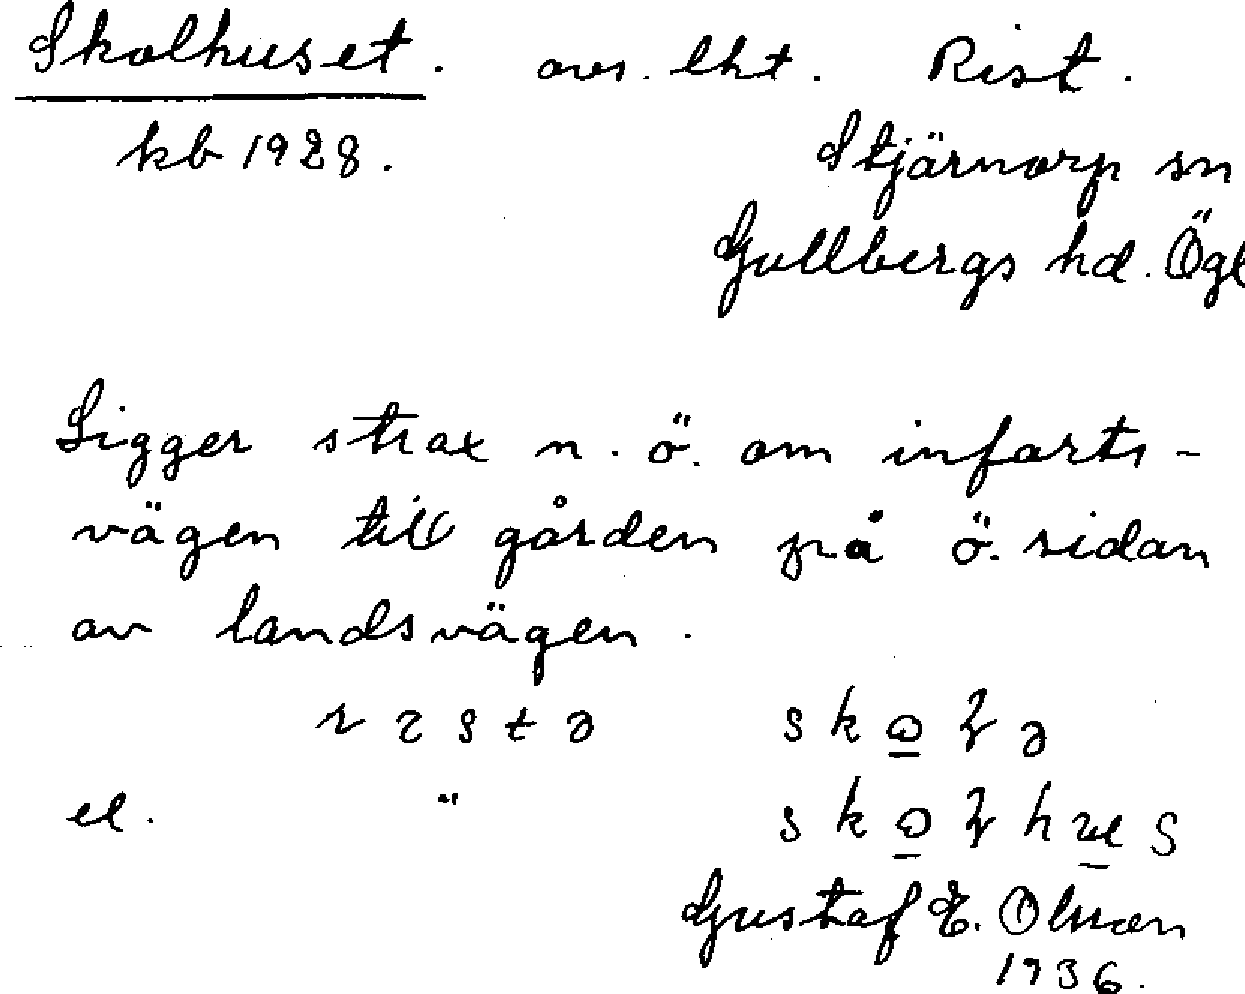 Skolhuset. avs. lht. Rist.
kb 1928. Stjärnorp sn
Gullbergs hd. Ögl
Ligger strax n. ö. om infarts-
vägen till gården på ö. sidan
av landsvägen.
el. "
Gustaf E. Olsson
1936.